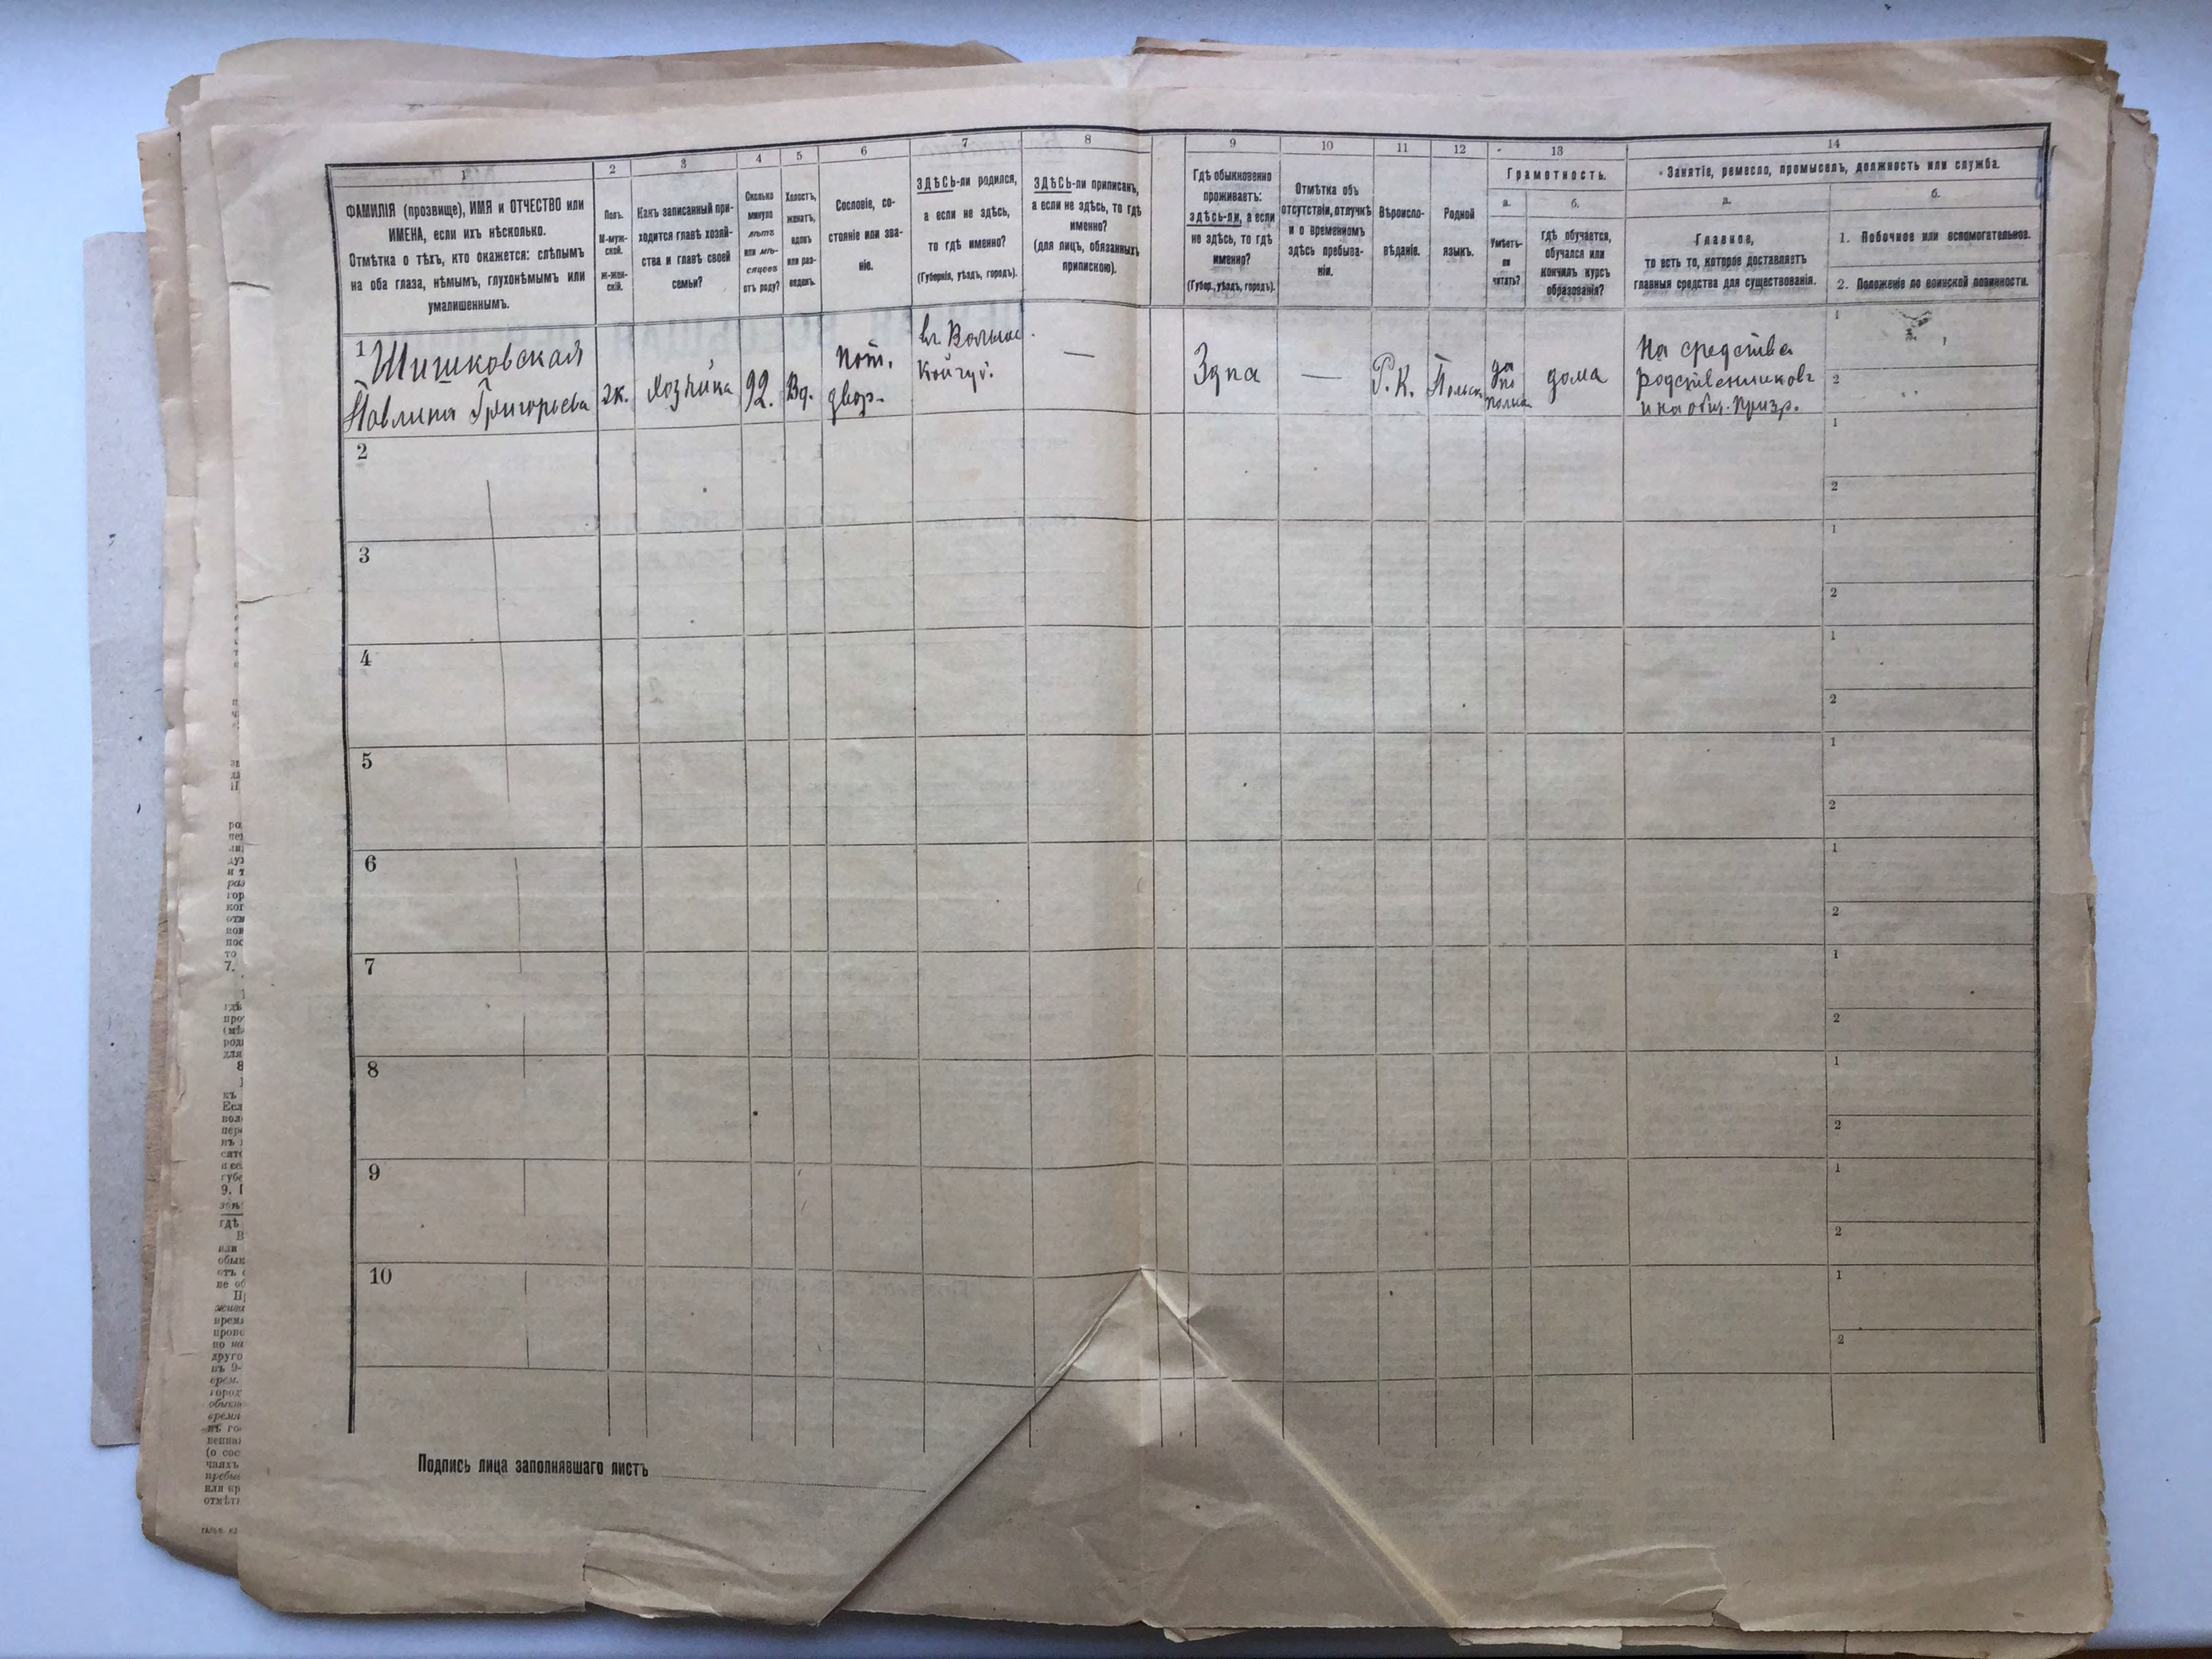 1
ФАМИЛІЯ (прозвище), ИМЯ и ОТЧЕСТВО или
ИМЕНА, если ихъ нѣсколько.
Отмѣтка о тѣхъ, кто окажется: слѣпымъ
на оба глаза, нѣмымъ, глухонѣмымъ или
умалишеннымъ.
2
Полъ.
М-муж-
ской.
ж-жен-
скій.
3
Какъ записанный при-
ходится главѣ хозяй-
ства и главѣ своей
семьи?
4
Сколько
минуло
лѣтъ
или мѣ-
сяцевъ
отъ роду?
5
Холостъ,
женатъ,
вдовъ
или раз-
веденъ.
6
Сословіе, со-
стояніе или зва-
ніе.
7
ЗДѢСЬ-ли родился,
а если не здѣсь,
то гдѣ именно?
(Губернія, уѣздъ, городъ).
8
ЗДѢСЬ-ли приписанъ,
а если не здѣсь, то гдѣ
именно?
(для лицъ, обязанныхъ
припискою).
9
Гдѣ обыкновенно
проживаетъ:
здѣсь-ли, а если
не здѣсь, то гдѣ
именно?
(Губер., уѣздъ, городъ).
10
Отмѣтка объ
отсутствіи, отлучкѣ
и о временномъ
здѣсь пребыва-
ніи.
11
Вѣроиспо-
вѣданіе.
12
Родной
языкъ.
13
Грамотность.
а.
Умѣетъ-
ли
читать?
б.
гдѣ обучается,
обучался или
кончилъ курсъ
образованія?
14
Занятіе, ремесло, промыселъ, должность или служба.
а.
Главное,
то есть то, которое доставляетъ
главныя средства для существованія.
б.
1. Побочное или вспомогательное.
2. Положеніе по воинской повинности.
1 Шишковская
Павлина Григорьева
ж.
хозяйка
92.
Вд.
пот.
двор.
—
Здпа
—
Р. К.
Польск
да
по
польск
дома
На средства
родственниковъ
и на общ. призр.
1
2
2
1
2
3
1
2
4
1
2
5
1
2
6
1
2
7
1
2
8
1
2
9
1
2
10
1
2
Подпись лица заполнявшаго листъ